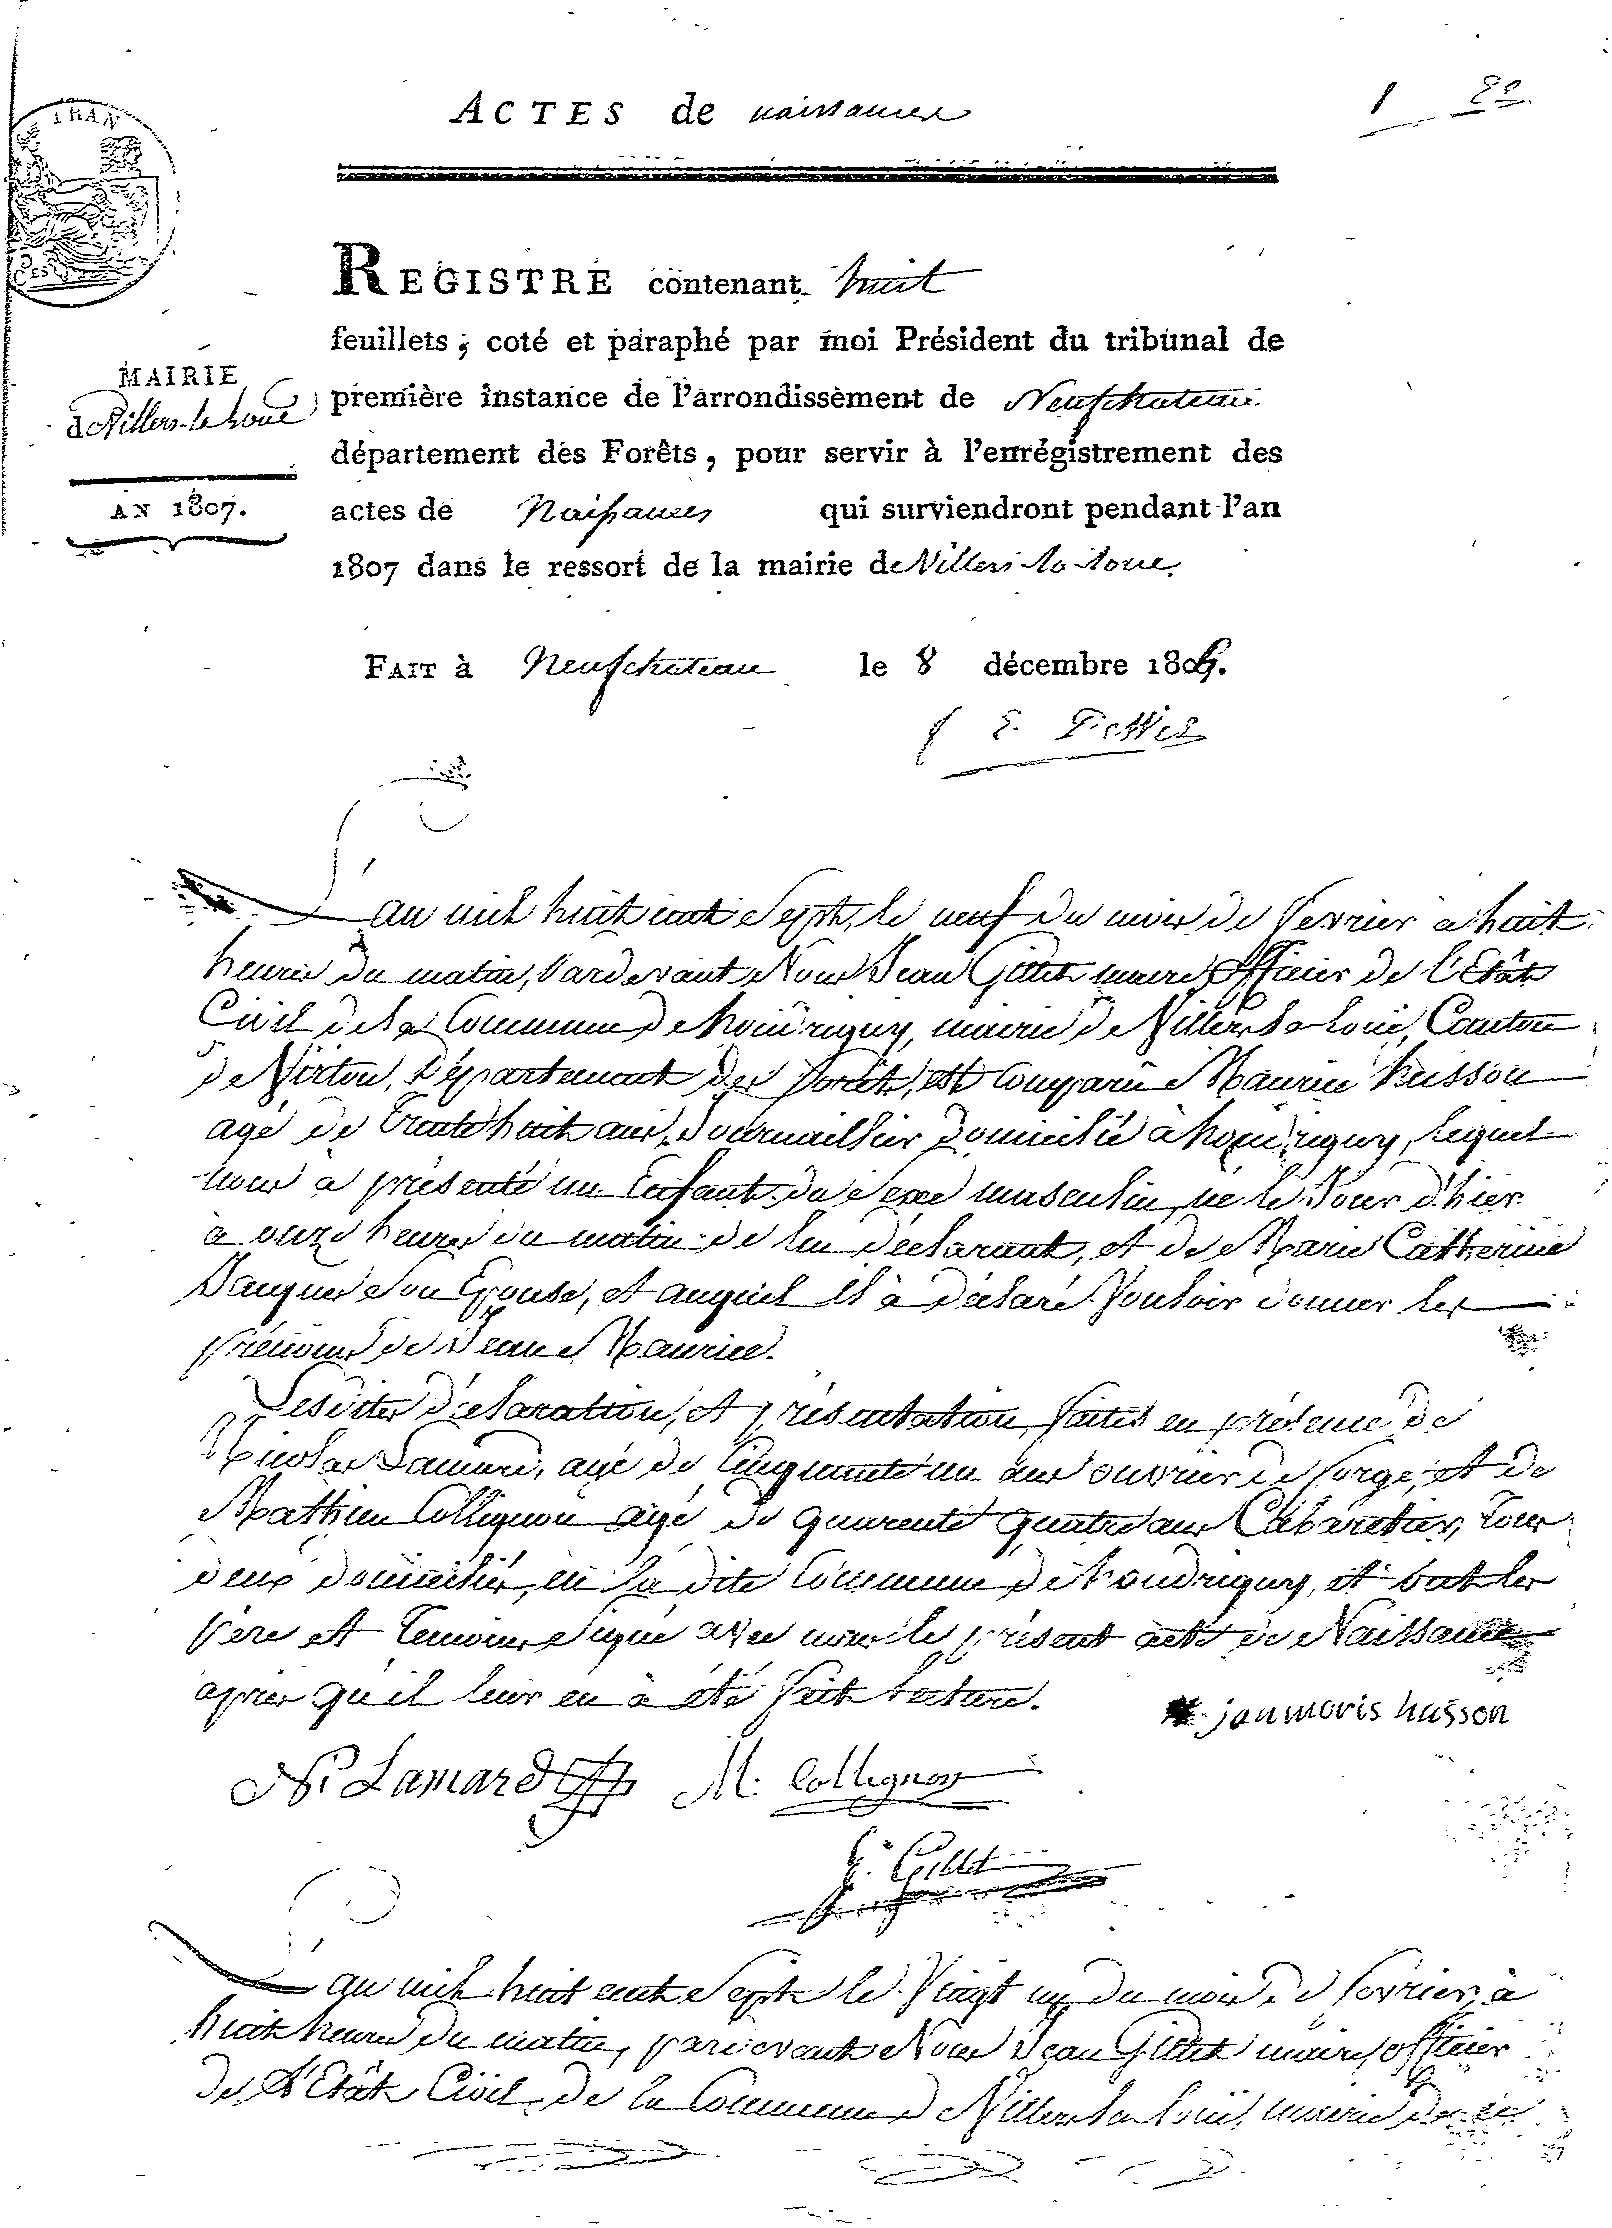 ACTES de naissances
1
REGISTRE contenant huit
feuillets, coté et paraphé par moi Président du tribunal de
première instance de l'arrondissement de Neufchateau
département des Forêts, pour servir à l'enrégistrement des
actes de Naissances qui surviendront pendant l'an
1807 dans le ressort de la mairie de Villers la loue.
MAIRIE
de Villers-la-loue
AN 1807.
FAIT à Neufchateau le 8 décembre 1806.
L'an mil huit cent Sept, le neuf du mois de fevrier a huit
heures du matin, Pardevant Nous Jean Gillet maire officier de l'Etât
Civil de la Commune de houdrigny, mairie de Villers la loüe, Canton
de Virton, Département des forêts, est Comparu Maurice husson
agé de trente huit ans, Journaillier domicilié à houdrigny, lequel
nous a présenté un Enfant du Sexe masculin, né le Jour d'hier
à onze heures du matin de lui déclarant, et de Marie Catherine
Jaques Son Epouse, et auquel Il à déclaré Vouloir donner les
prénoms de Jean Maurice.
Lesdites déclaration, et présentation faites en présence de
Nicolas Lamard, agé de Cinquante un ans ouvrier de forge, et de
Mathieu Collignon agé de quarente quatre ans Cabaretier, tous
deux domicilié, en la dite Commune de houdrigny, et ont les
Père et temoins Signé avec nous le présent acte de Naissance
après qu'il leur en à été fait lecture.
janmoris husson
N. Lamard M. Collignon
J. Gillet
L'an mil huit cent Sept le Vingt un du mois de fevrier, à
huit heures du matin, pardevant Nous Jean Gillet maire, officier
de L'Etât Civil de la Commune de Villers la loüe, mairie